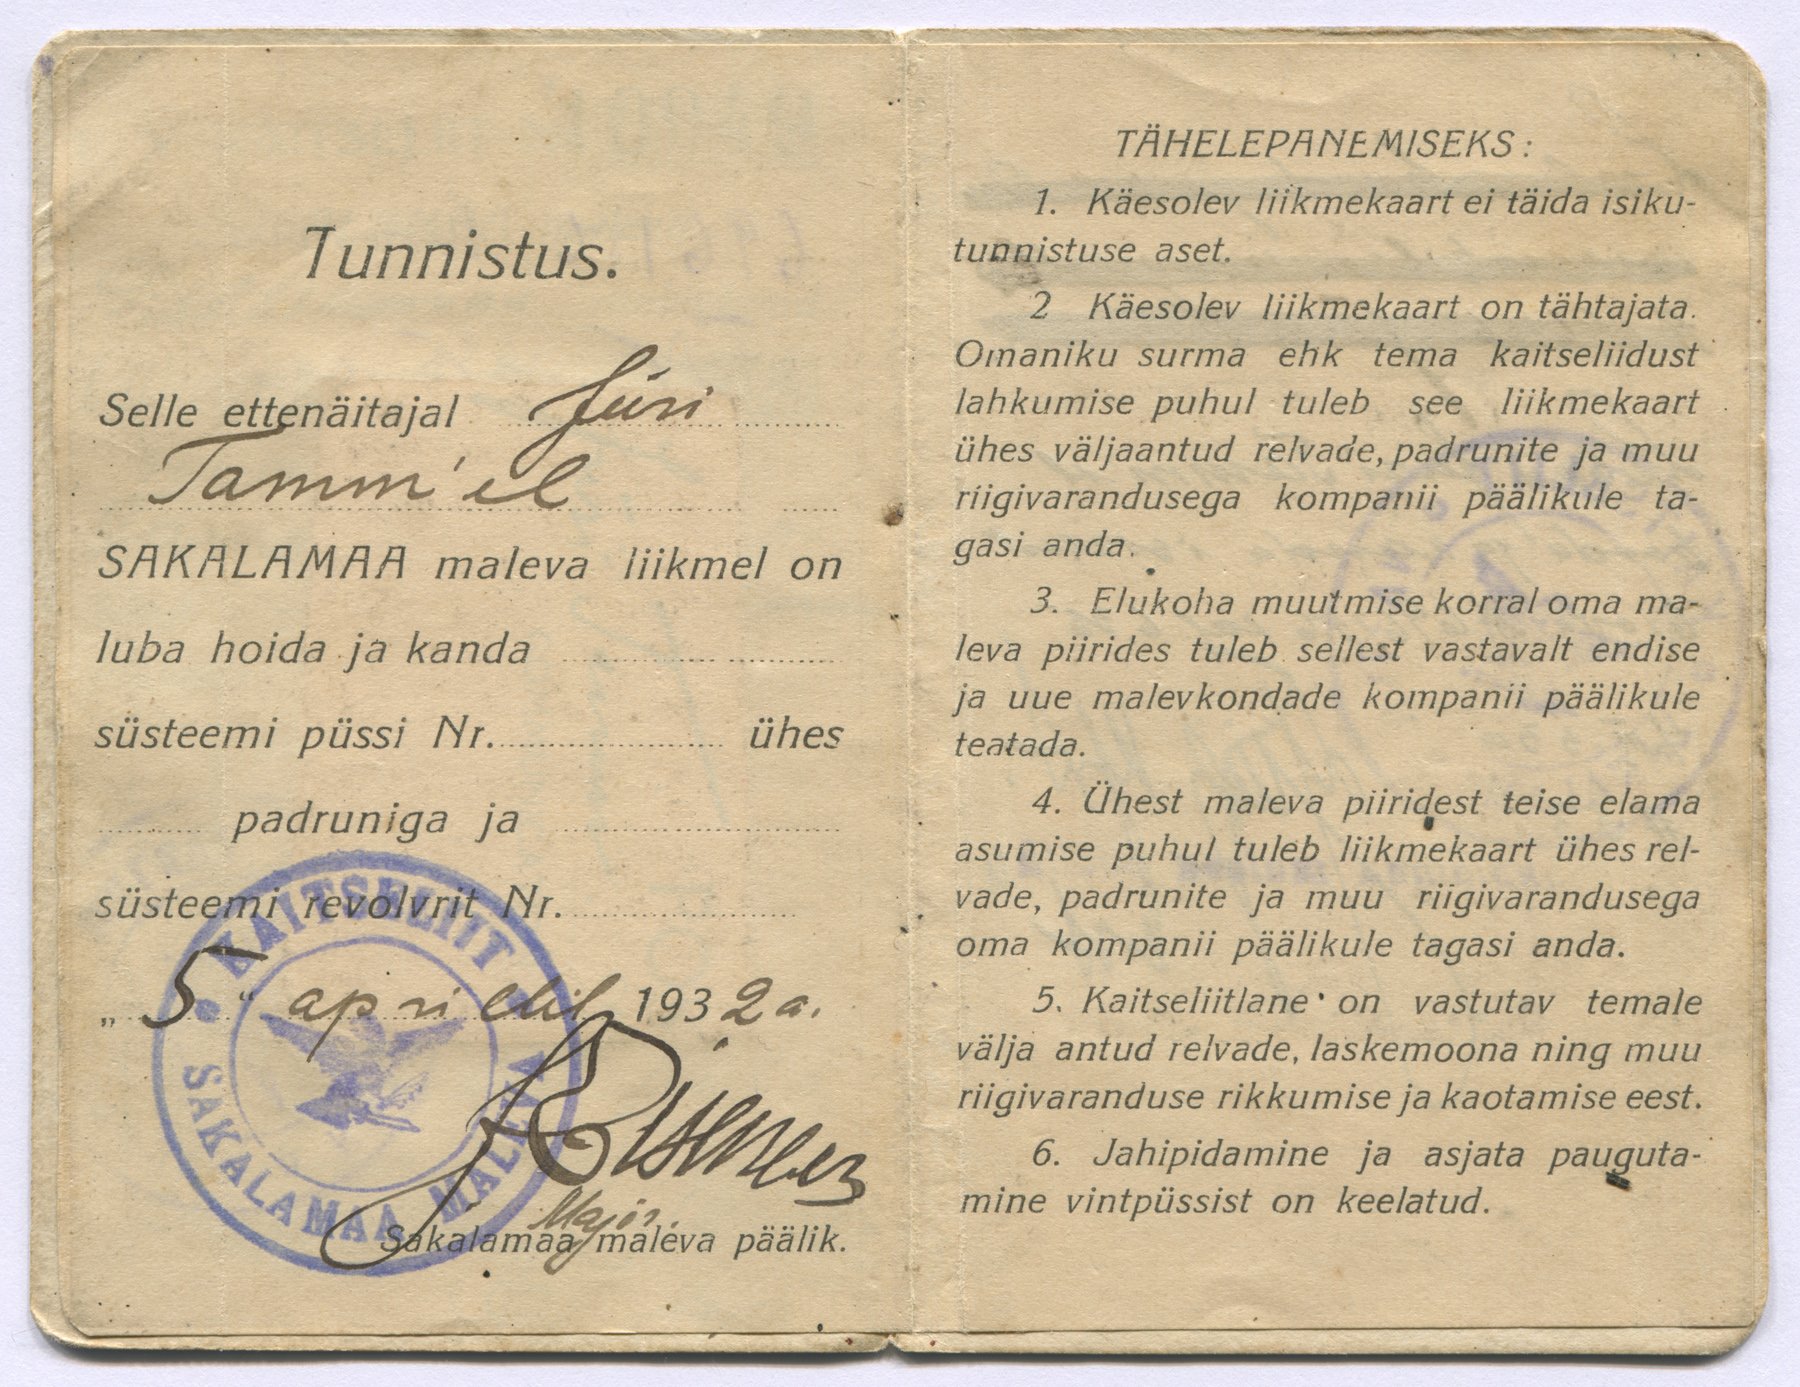 Tunnistus.
Selle ettenäitajal Jüri
Tamm'el
SAKALAMAA maleva liikmel on
luba hoida ja kanda
süsteemi püssi Nr. ühes
padruniga ja
süsteemi revolvrit Nr.
„5“ aprillil 1932 a.
Major
Sakalamaa maleva päälik.
KAITSELIIT
SAKALAMAA MALEVA
TÄHELEPANEMISEKS:
1. Käesolev liikmekaart ei täida isiku-
tunnistuse aset.
2 Käesolev liikmekaart on tähtajata.
Omaniku surma ehk tema kaitseliidust
lahkumise puhul tuleb see liikmekaart
ühes väljaantud relvade, padrunite ja muu
riigivarandusega kompanii päälikule ta-
gasi anda.
3. Elukoha muutmise korral oma ma-
leva piirides tuleb sellest vastavalt endise
ja uue malevkondade kompanii päälikule
teatada.
4. Ühest maleva piiridest teise elama
asumise puhul tuleb liikmekaart ühes rel-
vade, padrunite ja muu riigivarandusega
oma kompanii päälikule tagasi anda.
5. Kaitseliitlane on vastutav temale
välja antud relvade, laskemoona ning muu
riigivaranduse rikkumise ja kaotamise eest.
6. Jahipidamine ja asjata pauguta-
mine vintpüssist on keelatud.